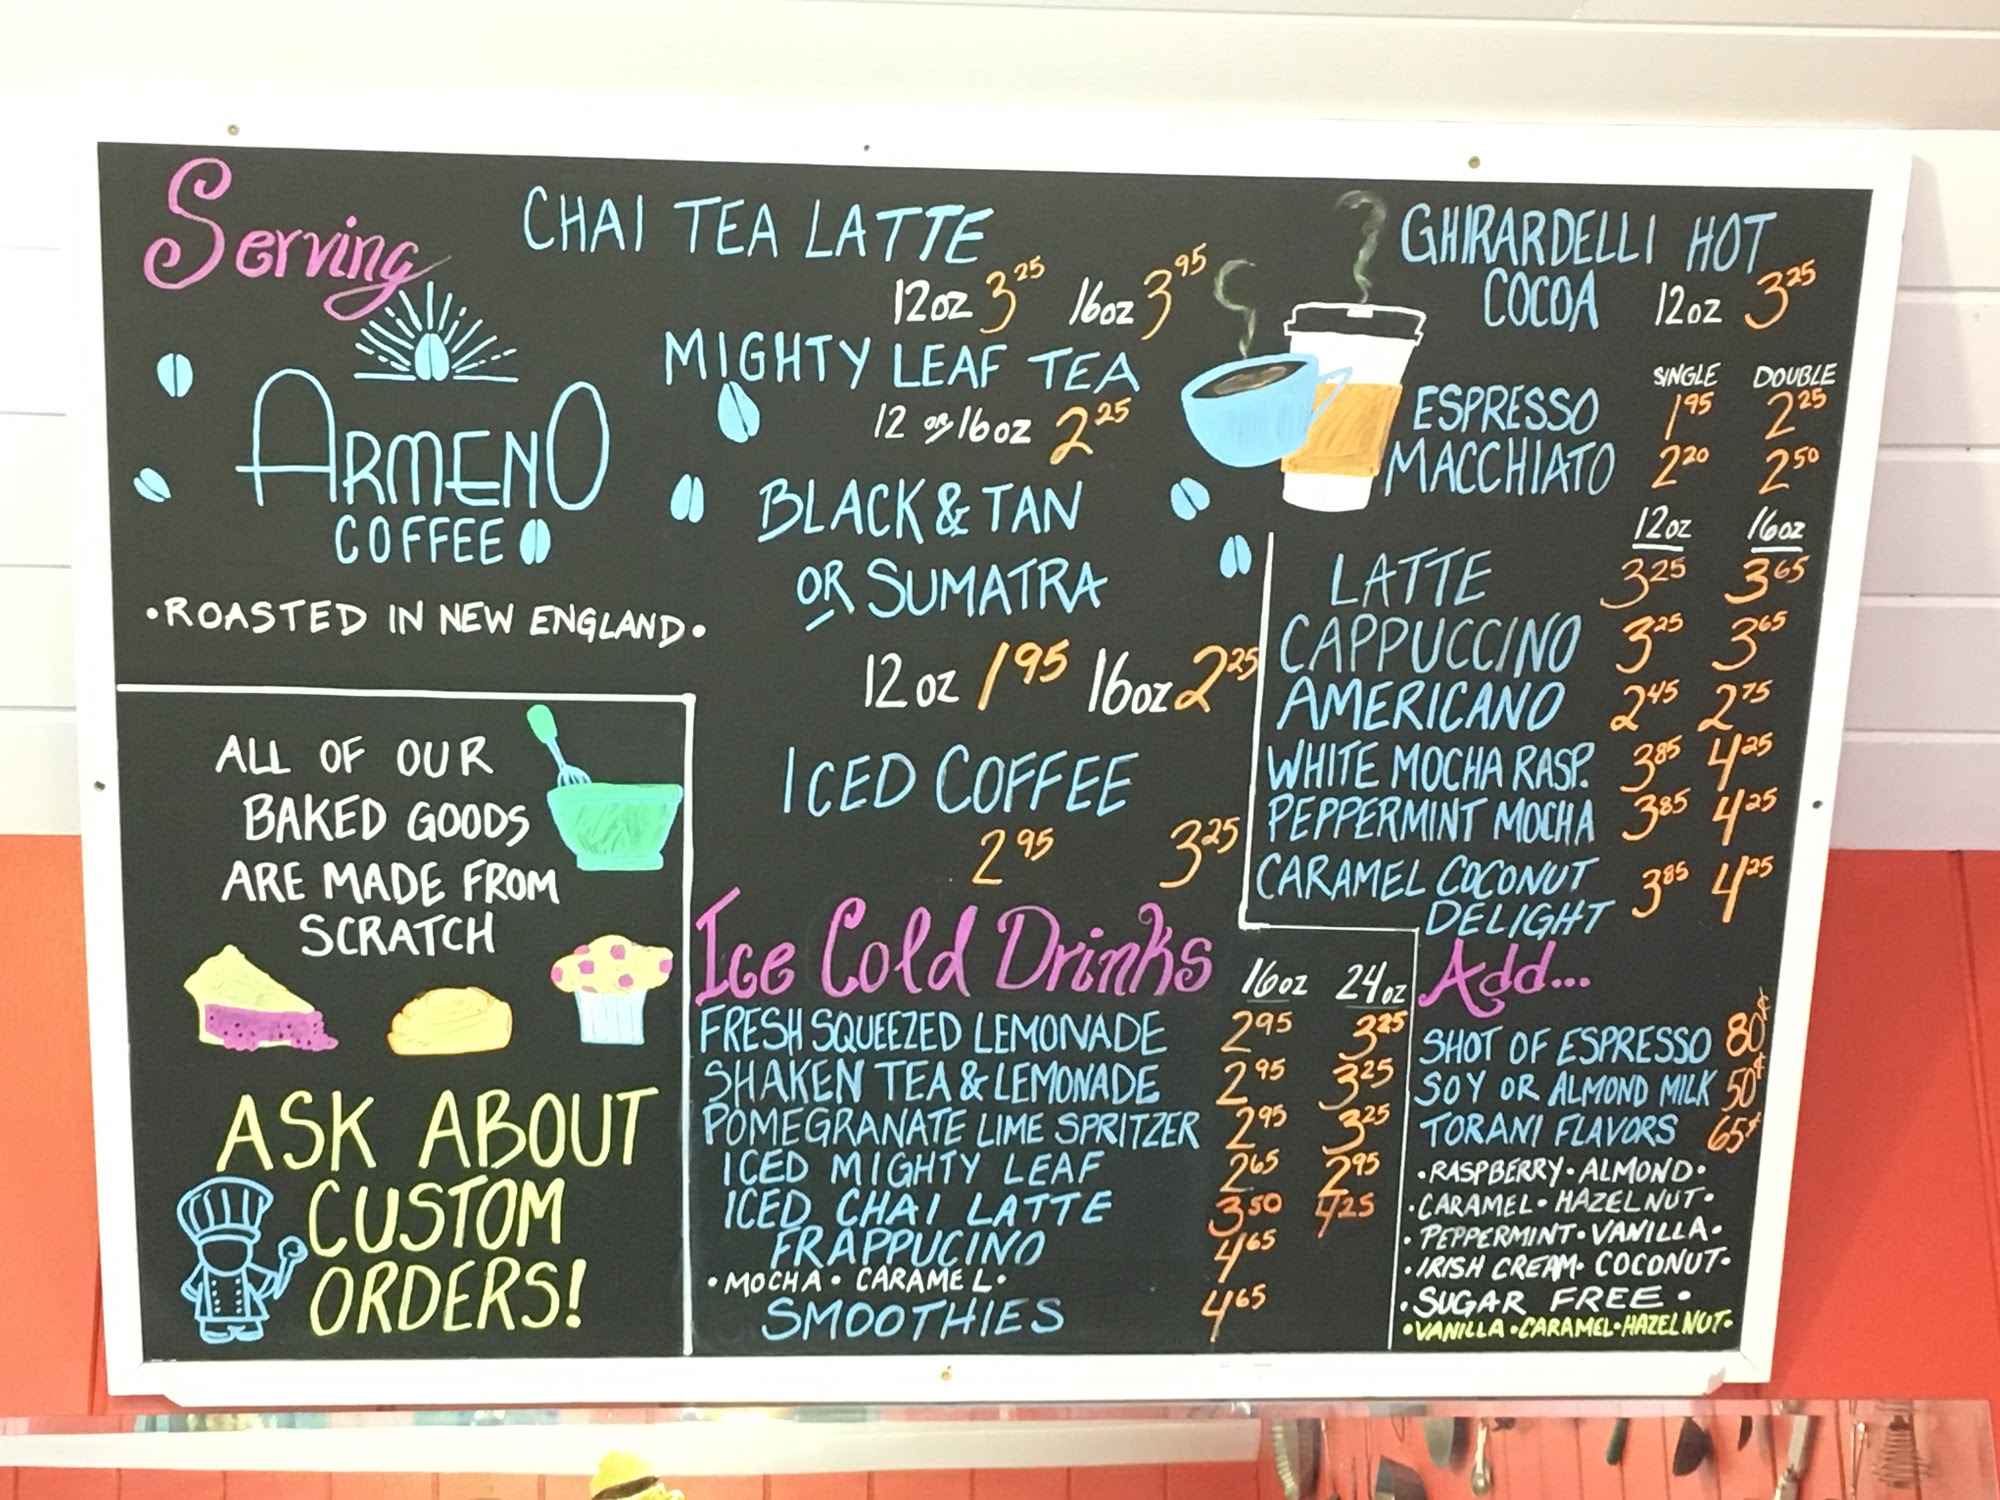 Serving
ARMENO
COFFEE
•ROASTED IN NEW ENGLAND•
ALL OF OUR
BAKED GOODS
ARE MADE FROM
SCRATCH
ASK ABOUT
CUSTOM
ORDERS!
CHAI TEA LATTE
12oz 3 25 16oz 3 95
MIGHTY LEAF TEA
12 or 16oz 2 25
BLACK & TAN
OR SUMATRA
12oz 1 95 16oz 2 25
ICED COFFEE
2 95 3 25
GHIRARDELLI HOT
COCOA 12oz 3 25
SINGLE DOUBLE
ESPRESSO 1 95 2 25
MACCHIATO 2 20 2 50
12oz 16oz
LATTE 3 25 3 65
CAPPUCCINO 3 25 3 65
AMERICANO 2 45 2 75
WHITE MOCHA RASP. 3 85 4 25
PEPPERMINT MOCHA 3 85 4 25
CARAMEL COCONUT
DELIGHT 3 85 4 25
Ice Cold Drinks 16oz 24oz
FRESH SQUEEZED LEMONADE 2 95 3 25
SHAKEN TEA & LEMONADE 2 95 3 25
POMEGRANATE LIME SPRITZER 2 95 3 25
ICED MIGHTY LEAF 2 65 2 95
ICED CHAI LATTE 3 50 4 25
FRAPPUCINO 4 65
•MOCHA• CARAMEL•
SMOOTHIES 4 65
Add...
SHOT OF ESPRESSO 80¢
SOY OR ALMOND MILK 50¢
TORANI FLAVORS 65¢
•RASPBERRY•ALMOND•
•CARAMEL•HAZELNUT•
•PEPPERMINT•VANILLA•
•IRISH CREAM•COCONUT•
•SUGAR FREE•
•VANILLA•CARAMEL•HAZELNUT•